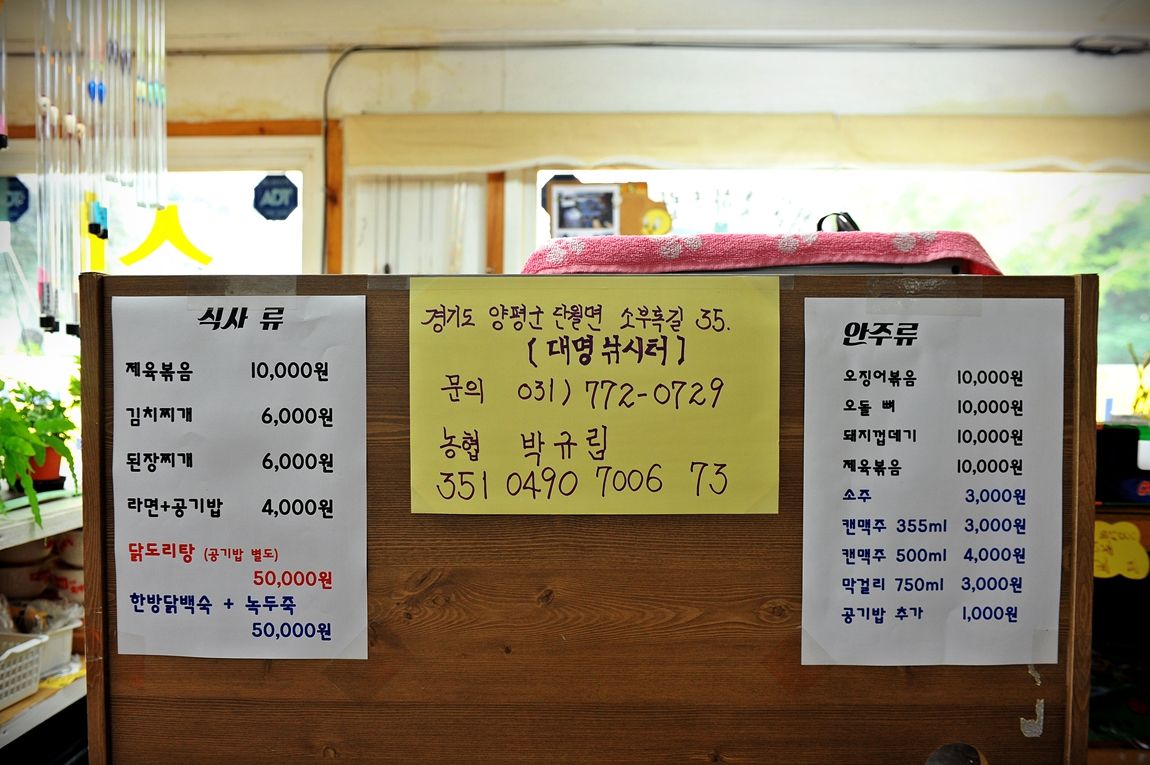 ADT
식사 류
제육볶음 10,000원
김치찌개 6,000원
된장찌개 6,000원
라면+공기밥 4,000원
닭도리탕 (공기밥 별도)
50,000원
한방닭백숙 + 녹두죽
50,000원
경기도 양평군 단월면 소부혹길 35.
[대명낚시터]
문의 031) 772-0729
농협 박규립
351 0490 7006 73
안주류
오징어볶음 10,000원
오돌 뼈 10,000원
돼지껍데기 10,000원
제육볶음 10,000원
소주 3,000원
캔맥주 355ml 3,000원
캔맥주 500ml 4,000원
막걸리 750ml 3,000원
공기밥 추가 1,000원